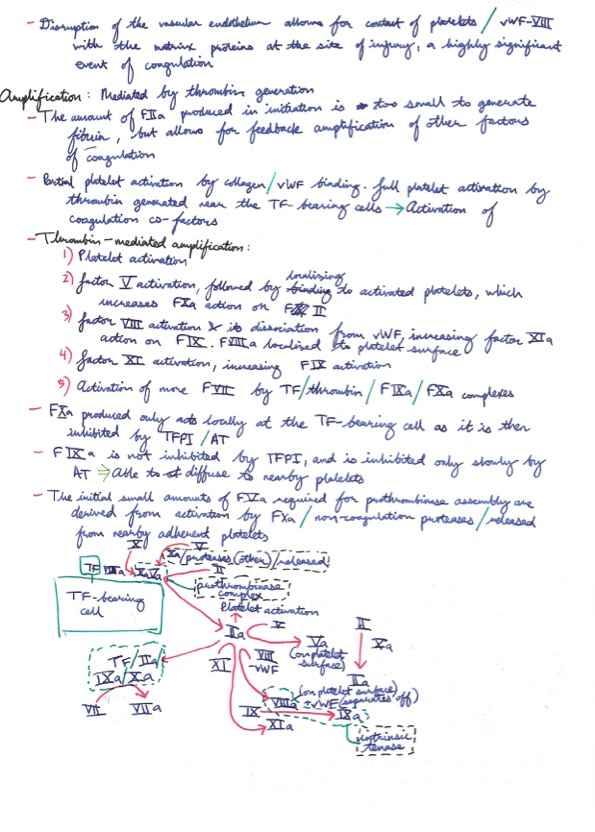 - Disruption of the vascular endothelium allows for contact of platelets / vWF-VIII
with the matrix proteins at the site of injury, a highly significant
event of coagulation
Amplification: Mediated by thrombin generation
- The amount of FIIa produced in initiation is too small to generate
fibrin, but allows for feedback amplification of other factors
of coagulation
- Partial platelet activation by collagen/vWF binding. Full platelet activation by
thrombin generated near the TF-bearing cells → Activation of
coagulation co-factors
- Thrombin-mediated amplification:
1) Platelet activation
localising
2) Factor V activation, followed by binding to activated platelets, which
increases FXa action on F II
3) Factor VIII activation & its dissociation from vWF, increasing factor IXa
action on FIX. FVIIIa localised to platelet surface
4) Factor XI activation, increasing FIX activation
5) Activation of more FVII by TF/thrombin/FIXa/FXa complexes
- FXa produced only acts locally at the TF-bearing cell as it is then
inhibited by TFPI/AT
- FIXa is not inhibited by TFPI, and is inhibited only slowly by
AT ⇒ Able to diffuse to nearby platelets
- The initial small amounts of FVa required for prothrombinase assembly are
derived from activation by FXa / non-coagulation proteases / released
from nearby adherent platelets
X V
Xa/proteases (other)/released
TF VIIa XaVa II
prothrombinase
complex
TF-bearing
cell
Platelet activation
IIa V Va
(on platelet
surface)
II Xa
IIa
TF/IIa/
IXa/Xa
XI VIII
-vWF
VIIIa (on platelet surface)
+vWF (separates off)
VII VIIa
IX IXa
XIa
intrinsic
tenase